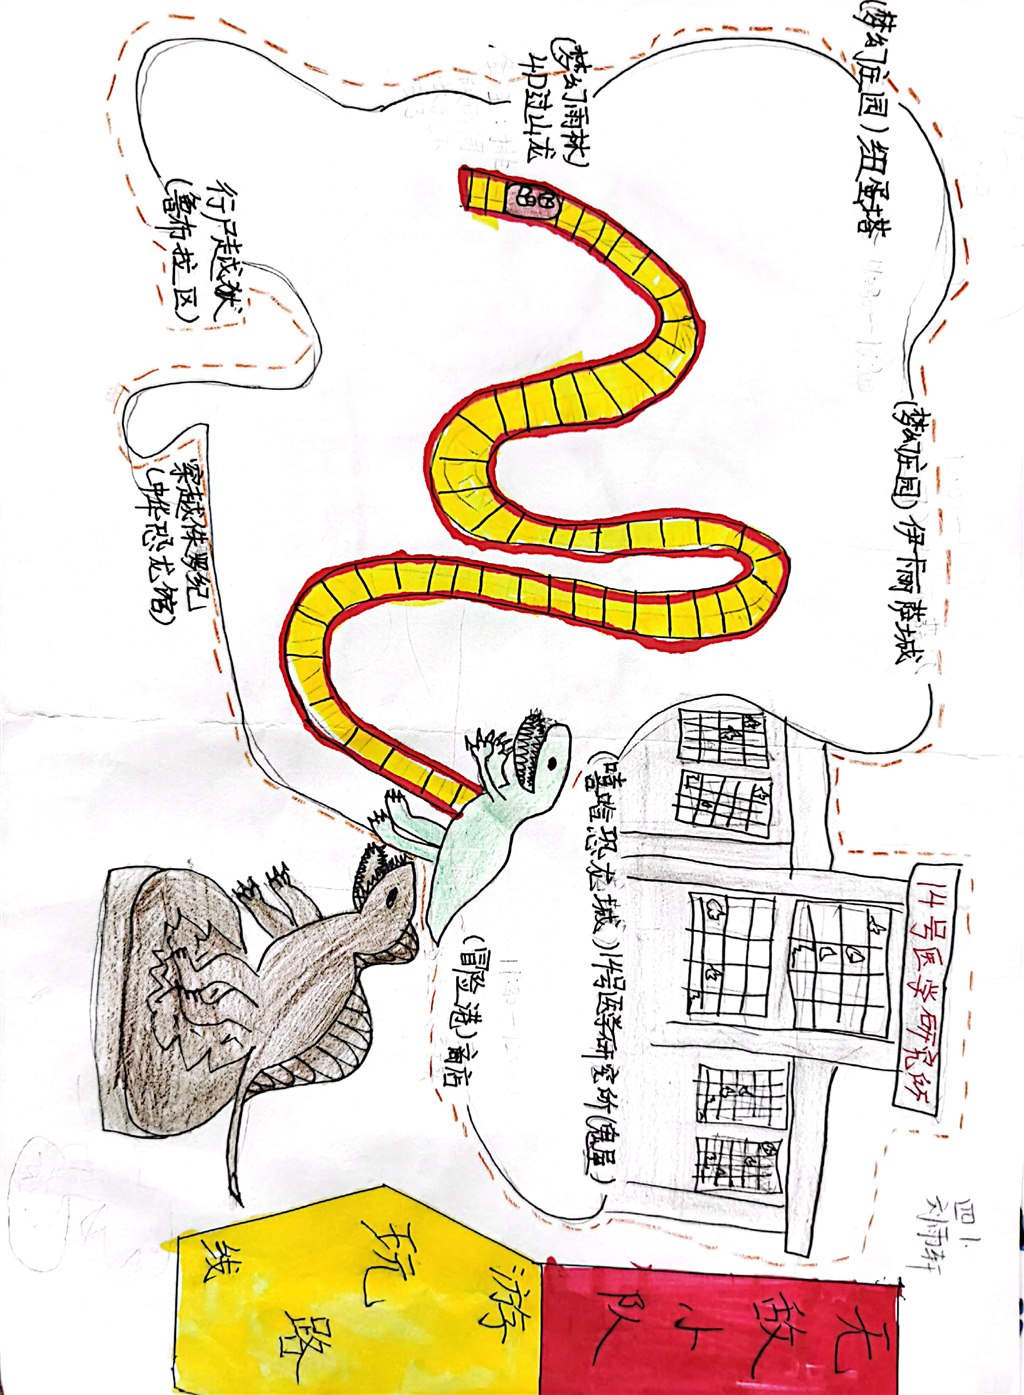 无敌小队
游玩
路线
刘雨轩
14号医学研究所
(梦幻庄园)纽蛋塔
(梦幻庄园)伊卡丽萨城
(嘻哈恐龙城)14号医学研究所(鬼屋)
(梦幻雨林)
4D过山龙
(冒险港)商店
行尸越狱
(鲁布拉区)
穿越侏罗纪
(中华恐龙馆)